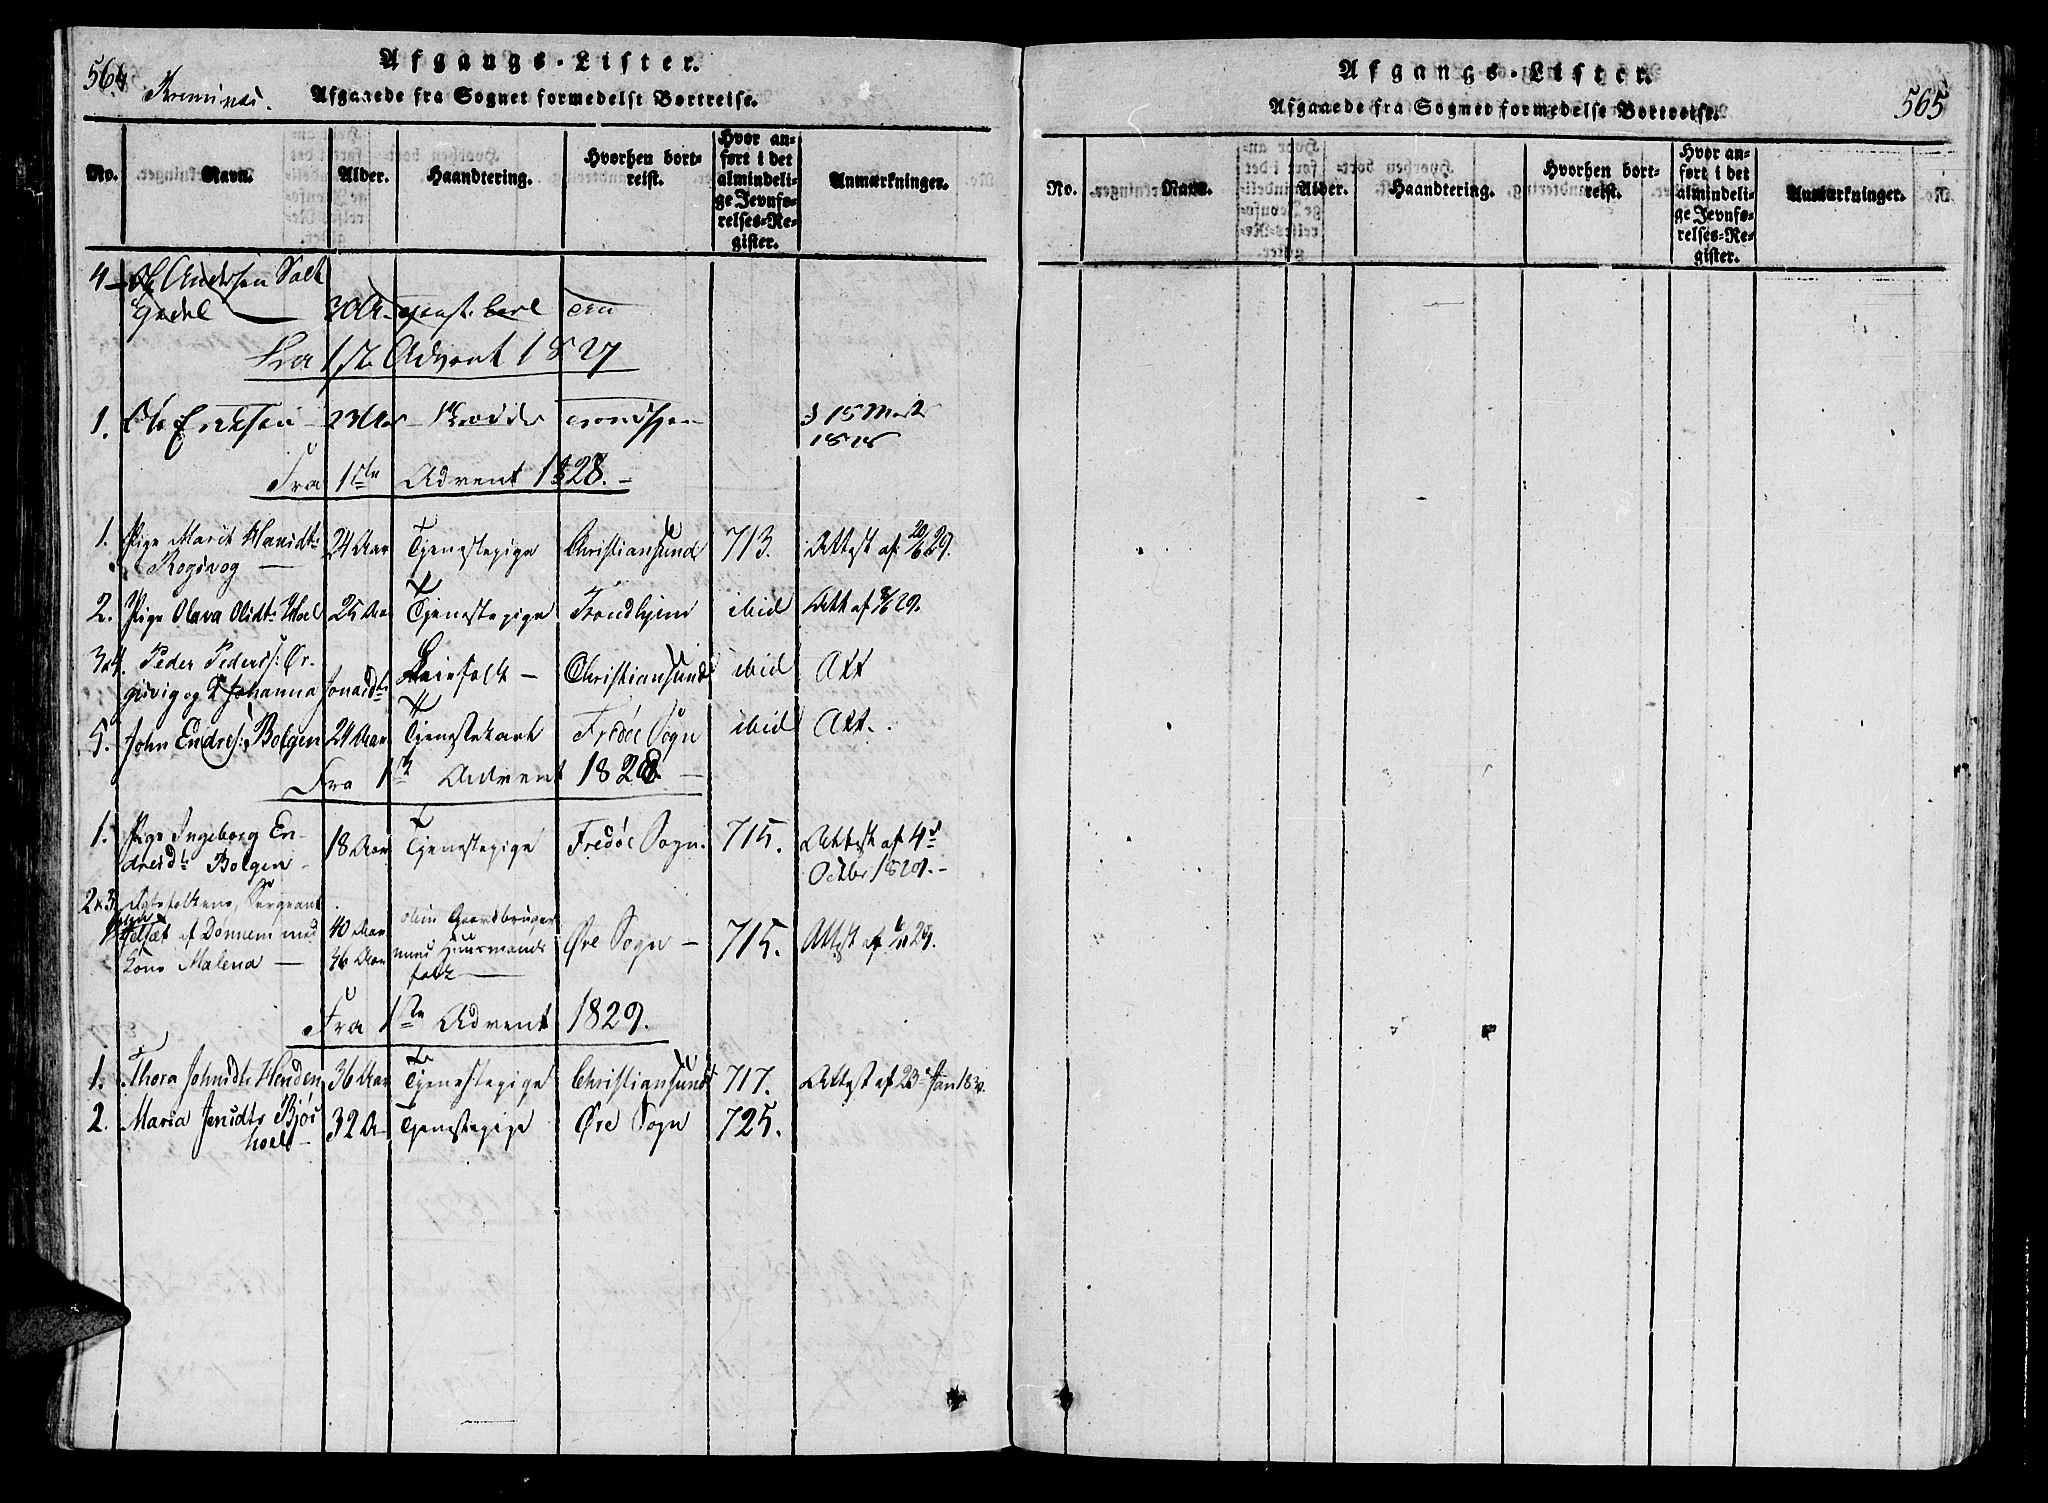 564
Afgangs-Lister.
Afgaaede fra Sognet formedelst Bortreise.
No. Navn. Alder. Haandtering. Hvorhen bortreist. Hvor anført i det almindelige Jevnførelses-Register. Anmærkninger.
4 Andersen
30 A.
Fra 1ste Advent 1827
1. Ole Ericksen 23 Aar
Fra 1ste Advent 1828.
1. Pige Marit 24 Aar Tjenestepige Christiansund 713. Attest af 29.
2. Pige Olava Olsdtr 25 Aar Tjenestepige Trondhjem ibid Att af 29.
3&4. Peder Peders: Ør-
givig og Johanna Jonasdtr Christiansund ibid Att
5. John Endres: Bolgen 24 Aar Tjenestekarl Fredøe Sogn ibid Att.
Fra 1ste Advent 1828
1. Pige Ingeborg En-
dresdtr Bolgen 18 Aar Tjenestepige Fredøe Sogn. 715. Attest af 4de
Octbr 1829.
2&3. Ægtefolkene, Sergeant
af Dønnem med 40 Aar Gaardbruger
Kone Malena 36 Aar Huusmands
folk Øre Sogn 715. Attest af 29.
Fra 1ste Advent 1829.
1. Thora Johnsdtr Henden 36 Aar Tjenestepige Christiansund 717. Attest af 23de Jan 1830.
2. Maria Jensdtr 32 A Tjenestepige Øre Sogn 725.
Afgangs-Lister.
Afgaaede fra Sognet formedelst Bortreise.
565
No. Navn. Alder. Haandtering. Hvorhen bortreist. Hvor anført i det almindelige Jevnførelses-Register. Anmærkninger.